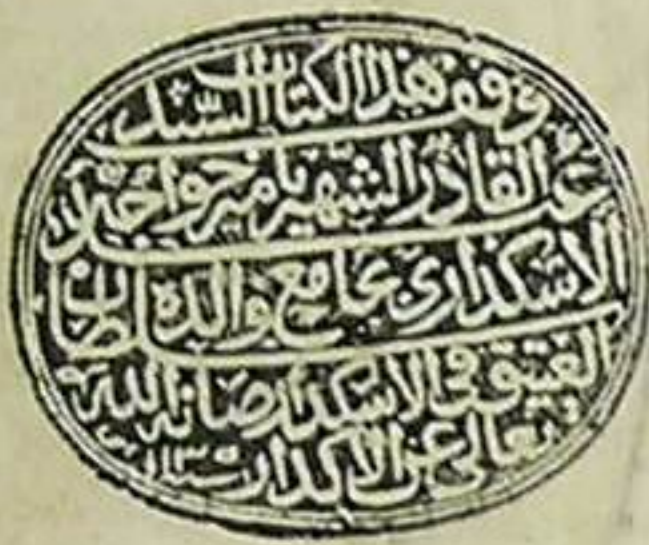 وقف هذا الكتاب السيد
عبد القادر الشهير بامير خواجه
الاسكداري بجامع والده سلطان
العتيق في الاسكدار صانه الله
تعالى عن الاكدار